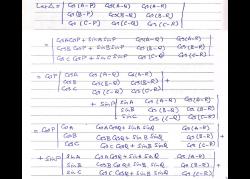 Let Δ = | Cos(A-P) Cos(A-Q) Cos(A-R) |
| Cos(B-P) Cos(B-Q) Cos(B-R) |
| Cos(C-P) Cos(C-Q) Cos(C-R) |
= | CosA CosP + SinA SinP Cos(A-Q) Cos(A-R) |
| CosB CosP + SinB SinP Cos(B-Q) Cos(B-R) |
| CosC CosP + SinC SinP Cos(C-Q) Cos(C-R) |
= CosP | CosA Cos(A-Q) Cos(A-R) |
| CosB Cos(B-Q) Cos(B-R) | +
| CosC Cos(C-Q) Cos(C-R) |
+ SinP | SinA Cos(A-Q) Cos(A-R) |
| SinB Cos(B-Q) Cos(B-R) |
| SinC Cos(C-Q) Cos(C-R) |
= CosP | CosA CosA CosQ + SinA SinQ Cos(A-R) |
| CosB CosB CosQ + SinB SinQ Cos(B-R) | +
| CosC CosC CosQ + SinC SinQ Cos(C-R) |
+ SinP | SinA CosA CosQ + SinA SinQ Cos(A-R) |
| SinB CosB CosQ + SinB SinQ Cos(B-R) |
| SinC CosC CosQ + SinC SinQ Cos(C-R) |